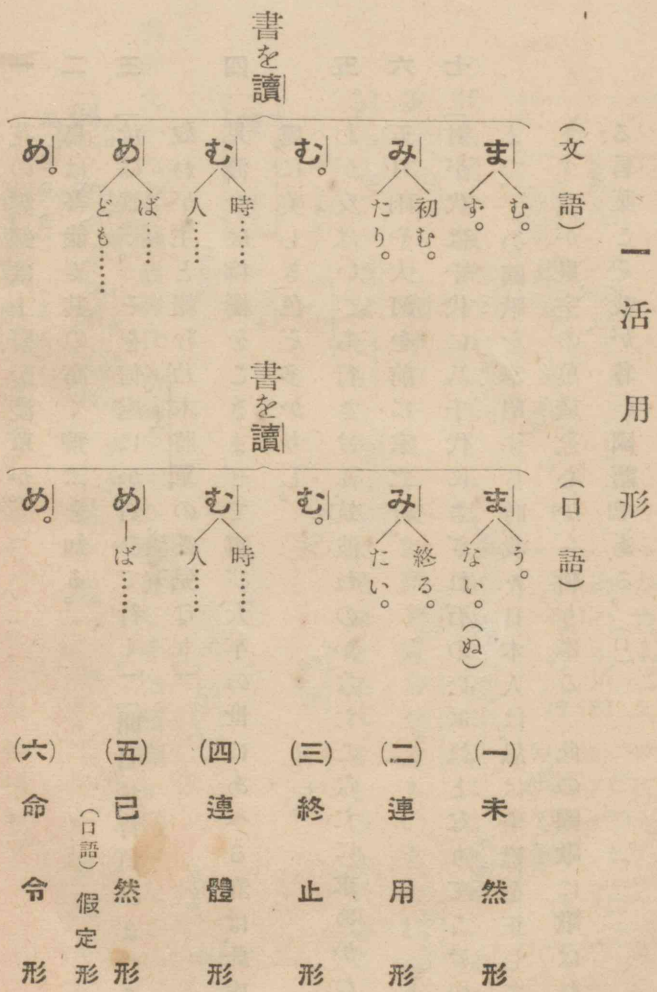 一 活用形
（文語）
書を讀
ま
む。
す。
み
初む。
たり。
む。
む
時……
人……
め
ば……
ども……
め。
（口語）
書を讀
ま
う。
ない。（ぬ）
み
終る。
たい。
む。
む
時……
人……
め―ば……
め。
(一) 未然形
(二) 連用形
(三) 終止形
(四) 連體形
(五) 已然形
（口語）假定形
(六) 命令形